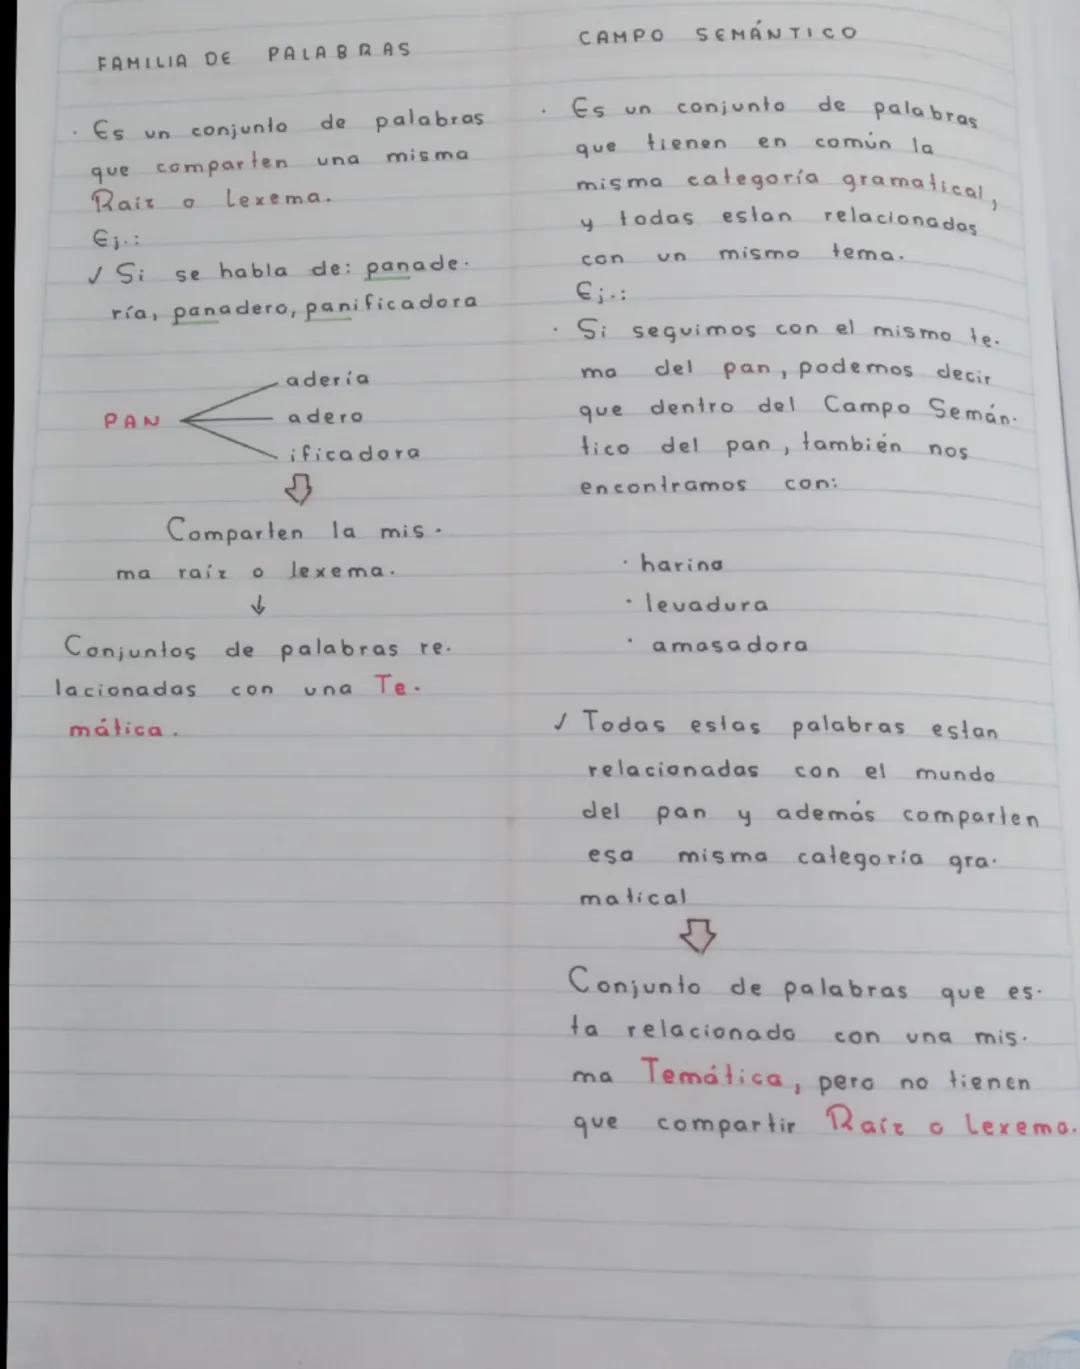 FAMILIA DE PALABRAS
· Es un conjunto de palabras
que comparten una misma
Raiz o Lexema.
Ej.:
✓ Si se habla de: panade-
ría, panadero, panificadora
adería
PAN
adero
ificadora
Comparten la mis-
ma raíz o lexema.
Conjuntos de palabras re-
lacionadas con una Te-
mática.
CAMPO SEMÁNTICO
· Es un conjunto de palabras
que tienen en común la
misma categoría gramatical,
y todas estan relacionadas
con un mismo tema.
Ej.:
· Si seguimos con el mismo te-
ma del pan, podemos decir
que dentro del Campo Semán-
tico del pan, también nos
encontramos con:
· harina
· levadura
· amasadora
✓ Todas estas palabras estan
relacionadas con el mundo
del pan y además comparten
esa misma categoría gra-
matical
Conjunto de palabras que es-
ta relacionado con una mis-
ma Temática, pero no tienen
que compartir Raíz o Lexema.